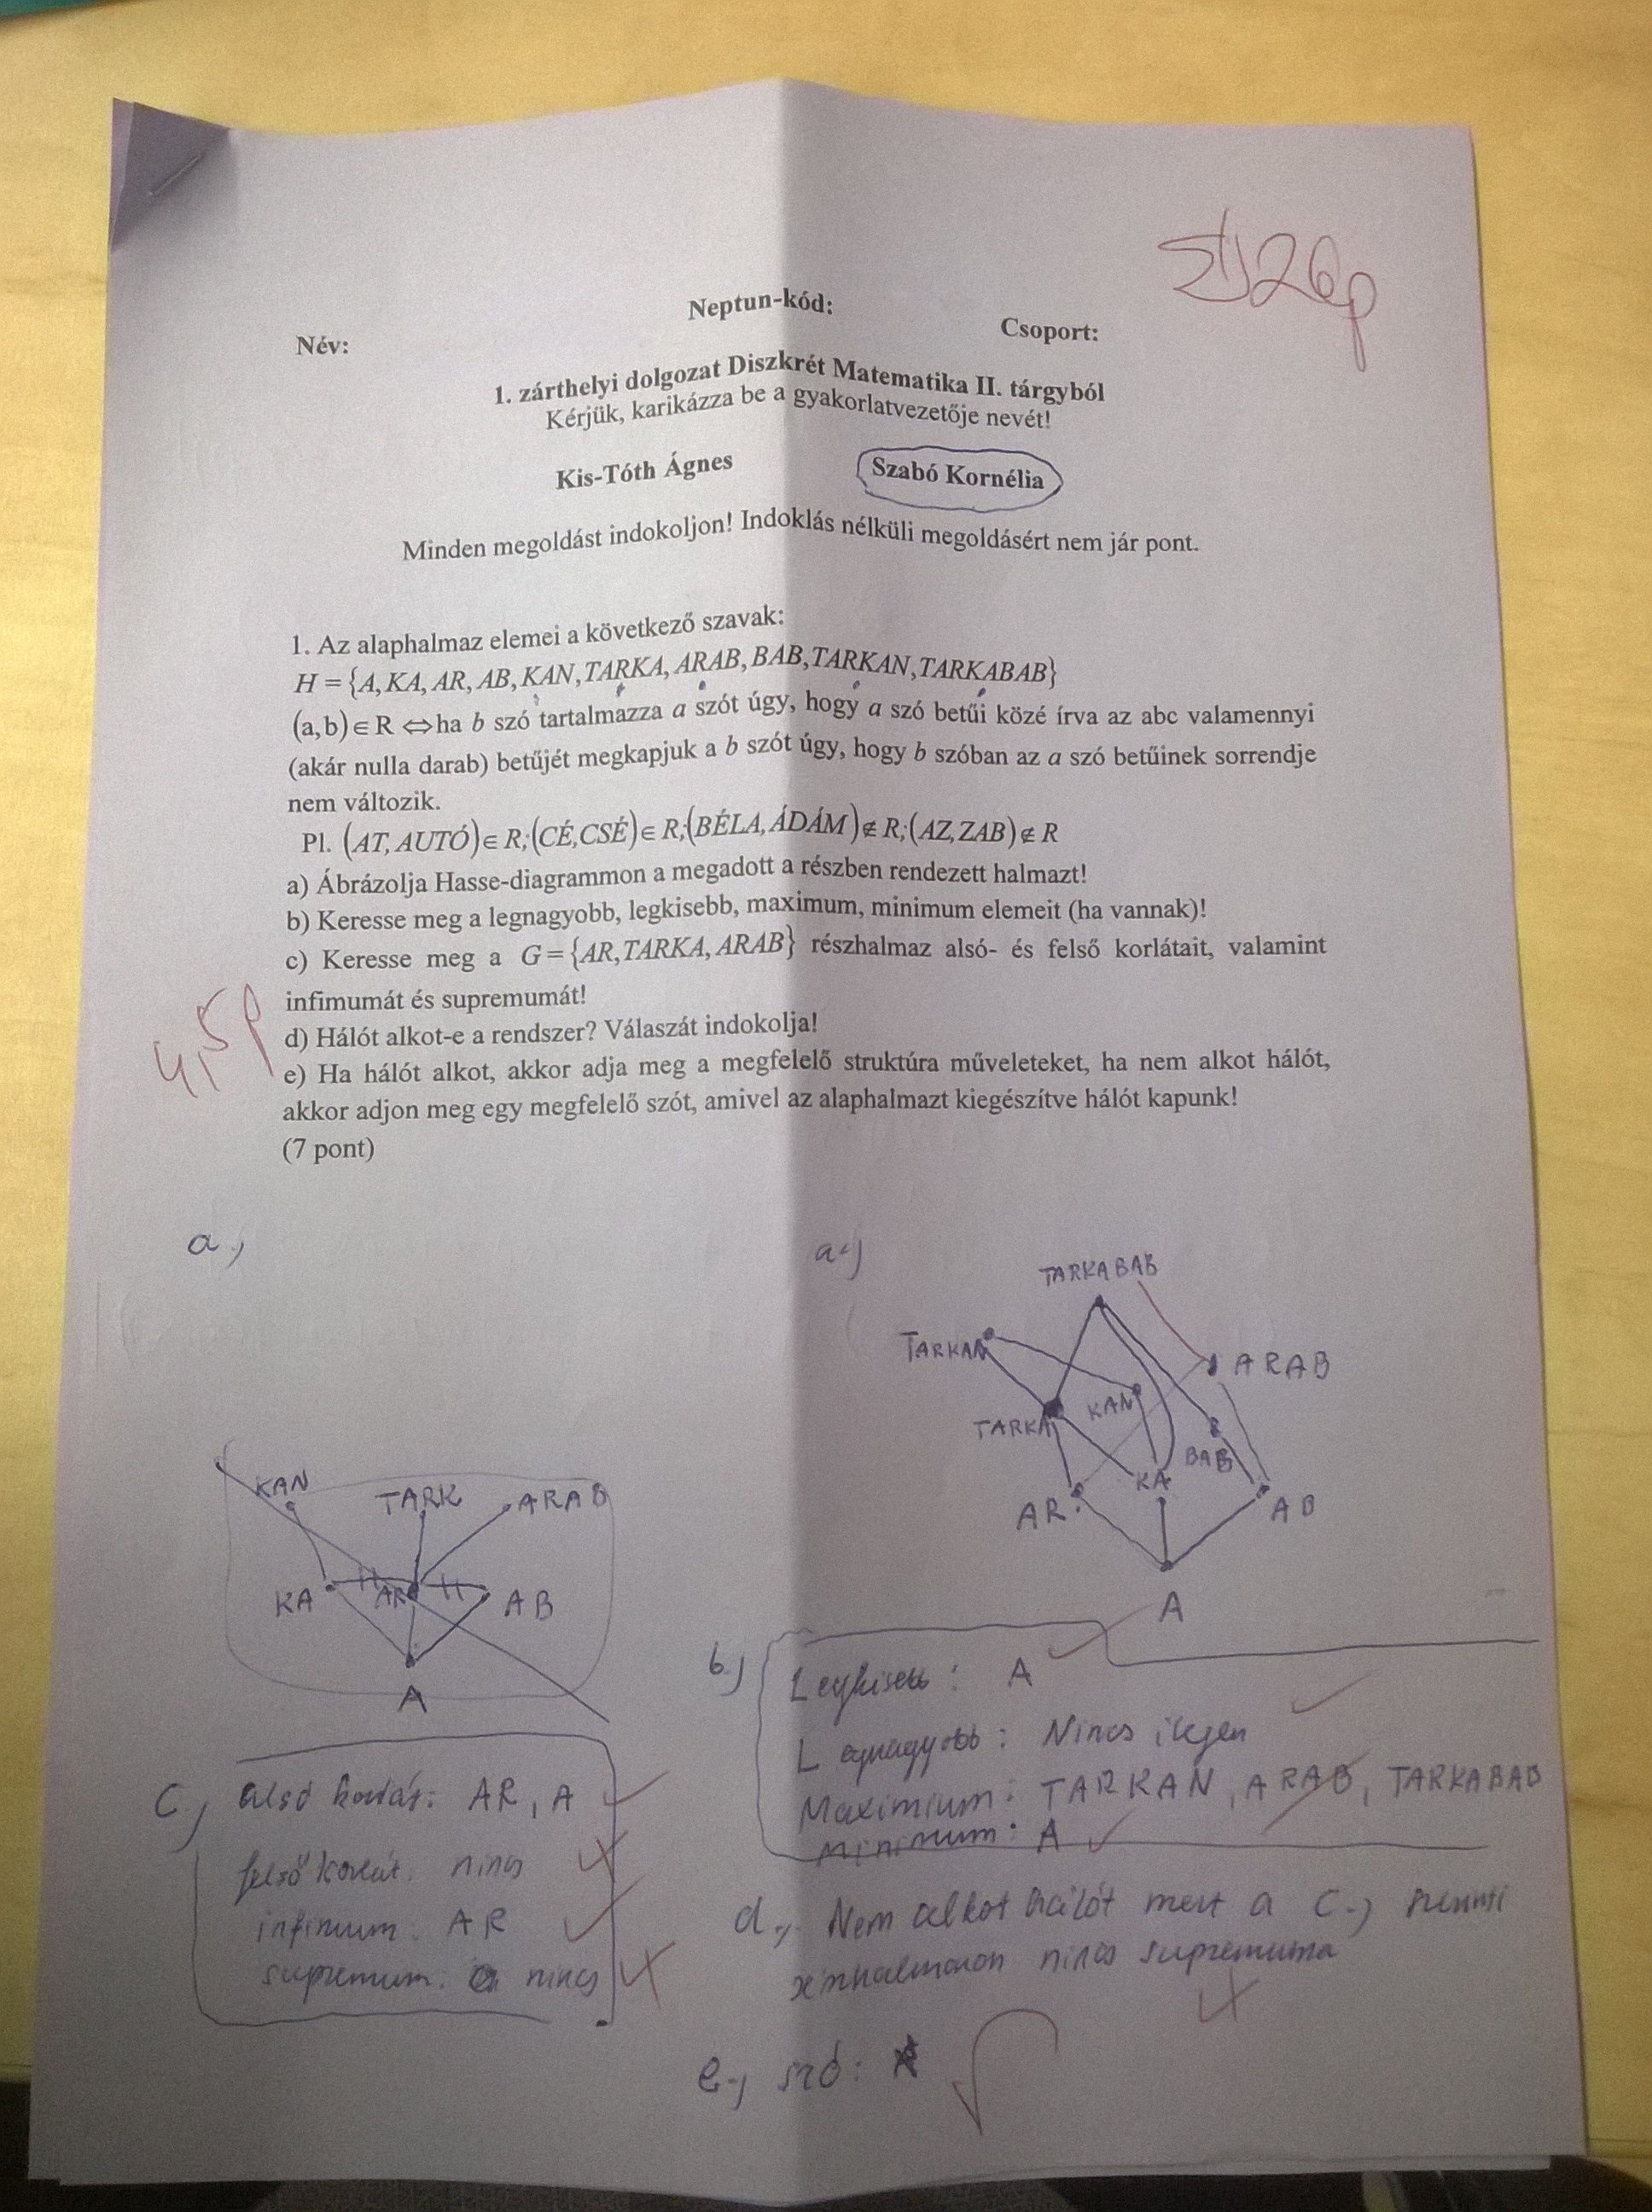 5/26p
Neptun-kód:
Név:
Csoport:
1. zárthelyi dolgozat Diszkrét Matematika II. tárgyból
Kérjük, karikázza be a gyakorlatvezetője nevét!
Kis-Tóth Ágnes Szabó Kornélia
Minden megoldást indokoljon! Indoklás nélküli megoldásért nem jár pont.
1. Az alaphalmaz elemei a következő szavak:
H = {A, KA, AR, AB, KAN, TARKA, ARAB, BAB, TARKAN, TARKABAB}
(a,b) ∈ R ⇔ ha b szó tartalmazza a szót úgy, hogy a szó betűi közé írva az abc valamennyi
(akár nulla darab) betűjét megkapjuk a b szót úgy, hogy b szóban az a szó betűinek sorrendje
nem változik.
Pl. (AT, AUTÓ) ∈ R; (CÉ, CSÉ) ∈ R; (BÉLA, ÁDÁM) ∉ R; (AZ, ZAB) ∉ R
a) Ábrázolja Hasse-diagrammon a megadott a részben rendezett halmazt!
b) Keresse meg a legnagyobb, legkisebb, maximum, minimum elemeit (ha vannak)!
c) Keresse meg a G = {AR, TARKA, ARAB} részhalmaz alsó- és felső korlátait, valamint
infimumát és supremumát!
4,5p
d) Hálót alkot-e a rendszer? Válaszát indokolja!
e) Ha hálót alkot, akkor adja meg a megfelelő struktúra műveleteket, ha nem alkot hálót,
akkor adjon meg egy megfelelő szót, amivel az alaphalmazt kiegészítve hálót kapunk!
(7 pont)
a.)
KAN TARK ARAB
KA AR AB
A
a.)
TARKABAB
TARKAN ARAB
TARKA KAN
BAB
AR KA AB
A
b.)
Legkisebb: A
Legnagyobb: Nincs ilyen
Maximium: TARKAN, ARAB, TARKABAB
Minimum: A
c.) alsó korlát: AR, A
felső korlát: nincs
infimum: AR
supremum: nincs
d., Nem alkot hálót mert a C.) szerinti
nincs supremuma
e., szó: